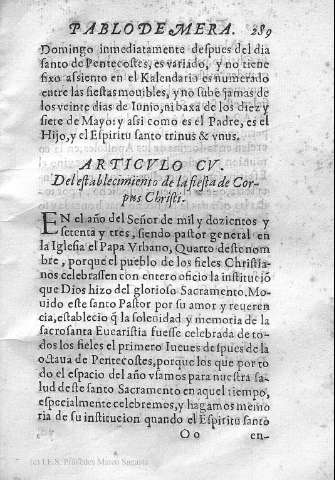 PABLO DE MERA. 289
Domingo inmediatamente despues del dia
santo de Pentecostes, es variado, y no tiene
fixo assiento en el Kalendario es numerado
entre las fiestas mouibles, y no sube jamas de
los veinte dias de Iunio, ni baxa de los diez y
siete de Mayo: y assi como es el Padre, es el
Hijo, y el Espiritu santo trinus & vnus.
ARTICVLO CV.
Del establecimiento de la fiesta de Cor-
pus Christi.
EN el año del Señor de mil y dozientos y
setenta y tres, siendo pastor general en
la Iglesia el Papa Vrbano, Quarto deste nom
bre, porque el pueblo de los fieles Christia-
nos celebrassen con entero oficio la instituciõ
que Dios hizo del glorioso Sacramento. Mo-
uido este santo Pastor por su amor y reueren
cia, establecio q̃ la solenidad y memoria de la
sacrosanta Eucaristia fuesse celebrada de to-
dos los fieles el primero Iueues despues de la
octaua de Pentecostes, porque los que por to
do el espacio del año vsamos para nuestra sa-
lud deste santo Sacramento en aquel tiempo,
especialmente celebremos, y hagamos memo
ria de su institucion quando el Espiritu santo
Oo en-
(c) I.E.S. Práxedes Mateo Sagasta